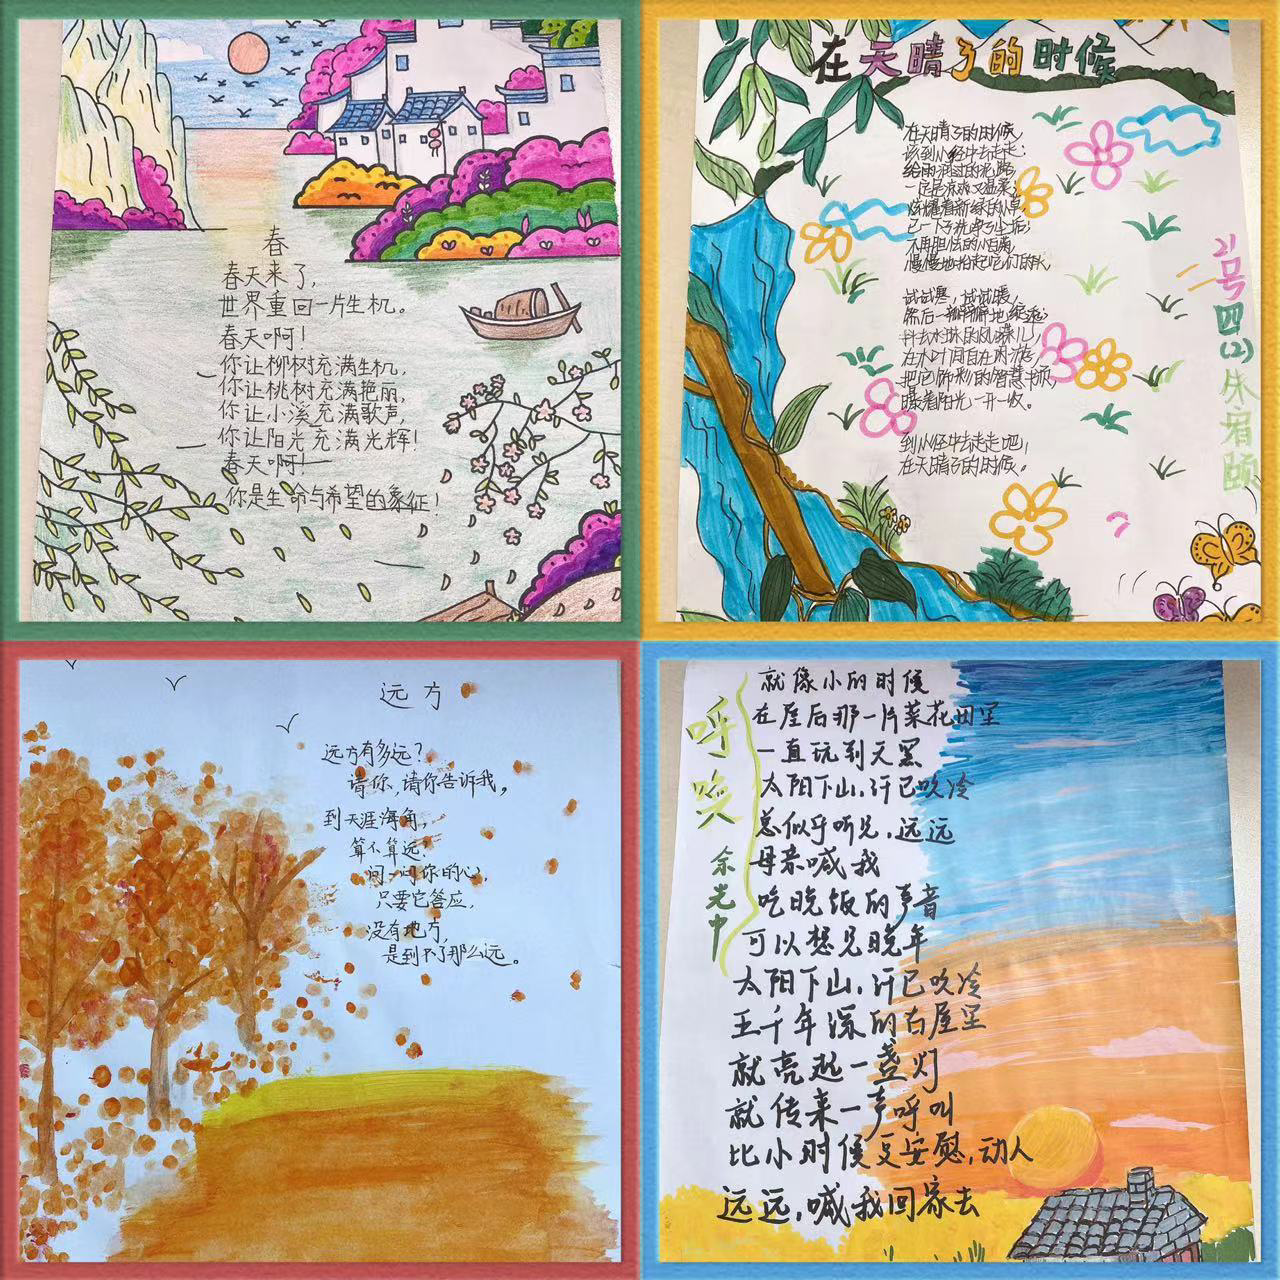 春
春天来了，
世界重回一片生机。
春天啊！
你让柳树充满生机，
你让桃树充满艳丽，
你让小溪充满歌声，
你让阳光充满光辉！
春天啊！
你是生命与希望的象征！
在天晴了的时候
在天晴了的时候，
该到小径中去走走：
给雨润过的泥路，
一定是凉爽又温柔；
炫耀着新绿的小草，
已一下子洗净了尘垢；
不再胆怯的小白菊，
慢慢地抬起它们的头，
试试寒，试试暖，
然后一瓣瓣地绽透；
抖去水珠的凤蝶儿，
在木叶间自在闲游，
把它饰彩的智慧书页，
曝着阳光一开一收。
到小径中去走走吧，
在天晴了的时候。
21号四(2)朱
远方
远方有多远？
请你，请你告诉我，
到天涯海角，
算不算远？
问一问你的心，
只要它答应，
没有地方，
是到不了那么远。
呼唤
余光中
就像小的时候
在屋后那一片菜花田里
一直玩到天黑
太阳下山，汗已吹冷
总似乎听见，远远
母亲喊我
吃晚饭的声音
可以想见晚年
太阳下山，汗已吹冷
五千年深的古屋里
就亮起一盏灯
就传来一声呼叫
比小时候更安慰，动人
远远，喊我回家去